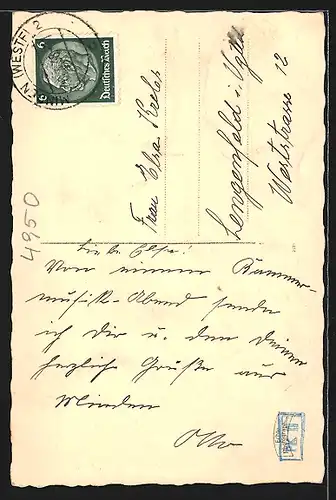 MINDEN (WESTF) 2
6 6
Deutsches Reich
Frau Elsa Keeler
Lengenfeld i. Vgtl.
Weststrasse 12
4950
Liebe Elsa!
Von einem Kammer-
musik-Abend sende
ich Dir u. den Deinen
herzliche Grüße aus
Minden
Otto